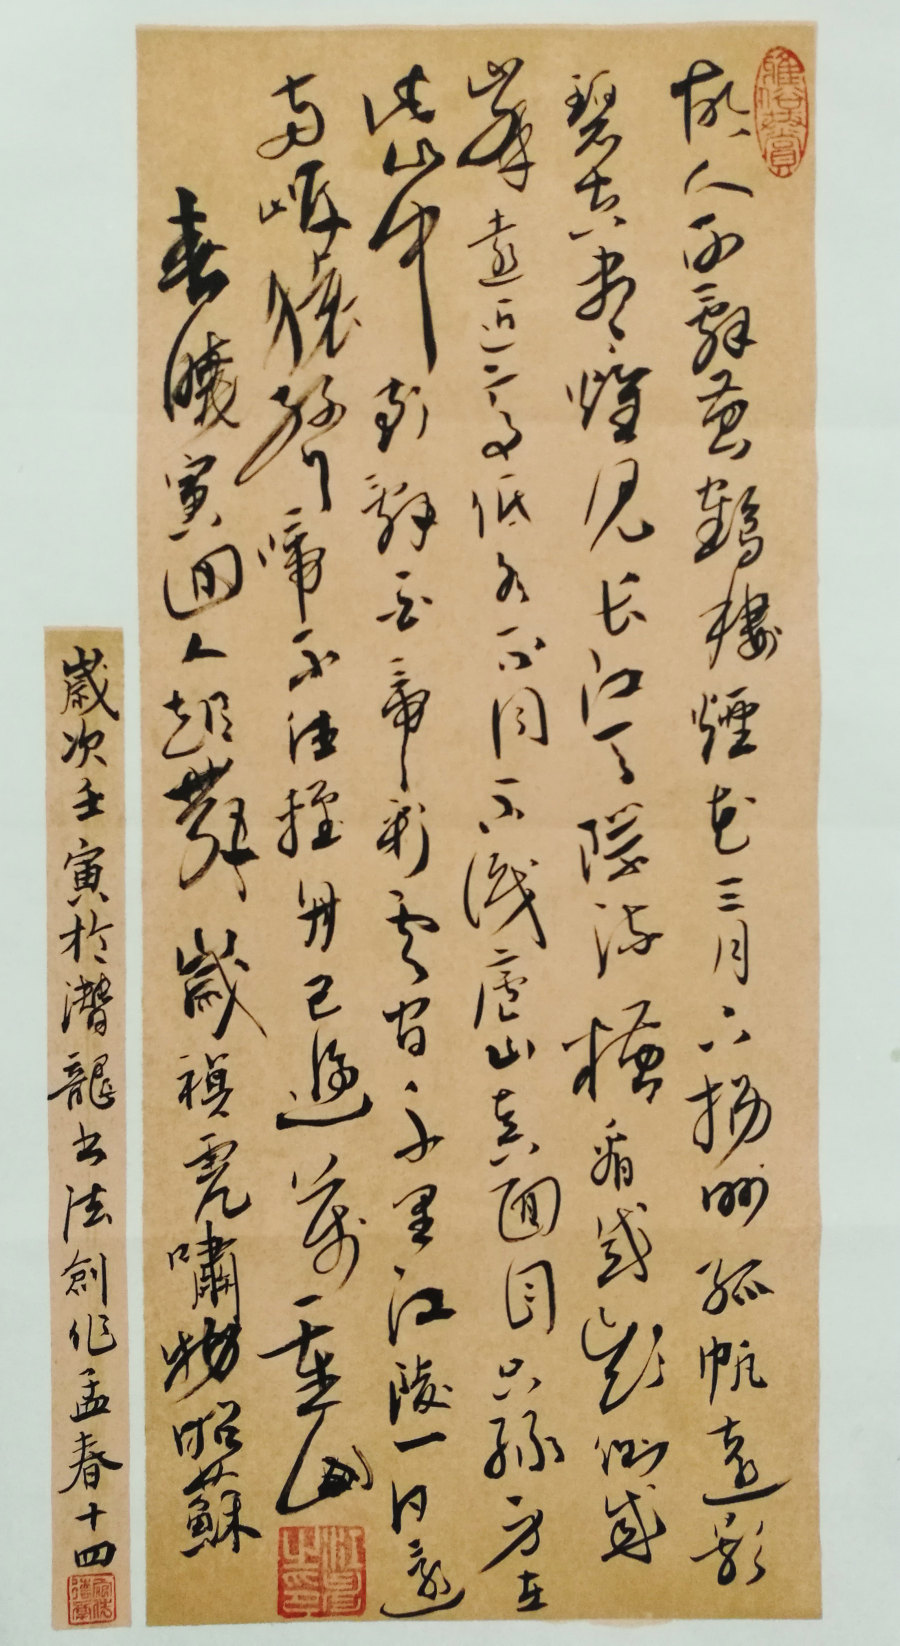 雅俗共賞
故人西辭黃鶴樓煙花三月下揚州孤帆遠影
碧空盡惟見长江天際流橫看成嶺側成
峯遠近高低各不同不識廬山真面目只緣身在
此山中朝辭白帝彩雲間千里江陵一日還
兩岸猿聲啼不住輕舟已過萬重山
春曦寅回人起舞歲禎虎嘯物昭蘇
歲次壬寅於潛龍書法創作孟春十四